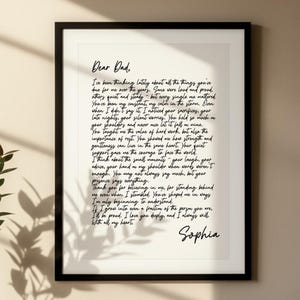 Dear Dad,
I've been thinking lately about all the things you've
done for me over the years. Some were loud and proud,
others quiet and steady - but every single one mattered.
You've been my constant, my calm in the storm. Even
when I didn't say it, I noticed your sacrifices, your
late nights, your silent worries. You held so much on
your shoulders and never once let it fall on mine.
You taught me the value of hard work, but also the
importance of rest. You showed me how strength and
gentleness can live in the same heart. Your quiet
support gave me the courage to face the world.
I think about the small moments - your laugh, your
advice, your hand on my shoulder when words weren't
enough. You may not always say much, but your
presence says everything.
Thank you for believing in me, for standing behind
me even when I stumbled. You've shaped me in ways
I'm only beginning to understand.
If I grow into even a fraction of the person you are,
I'll be proud. I love you deeply, and I always will.
With all my heart,
Sophia